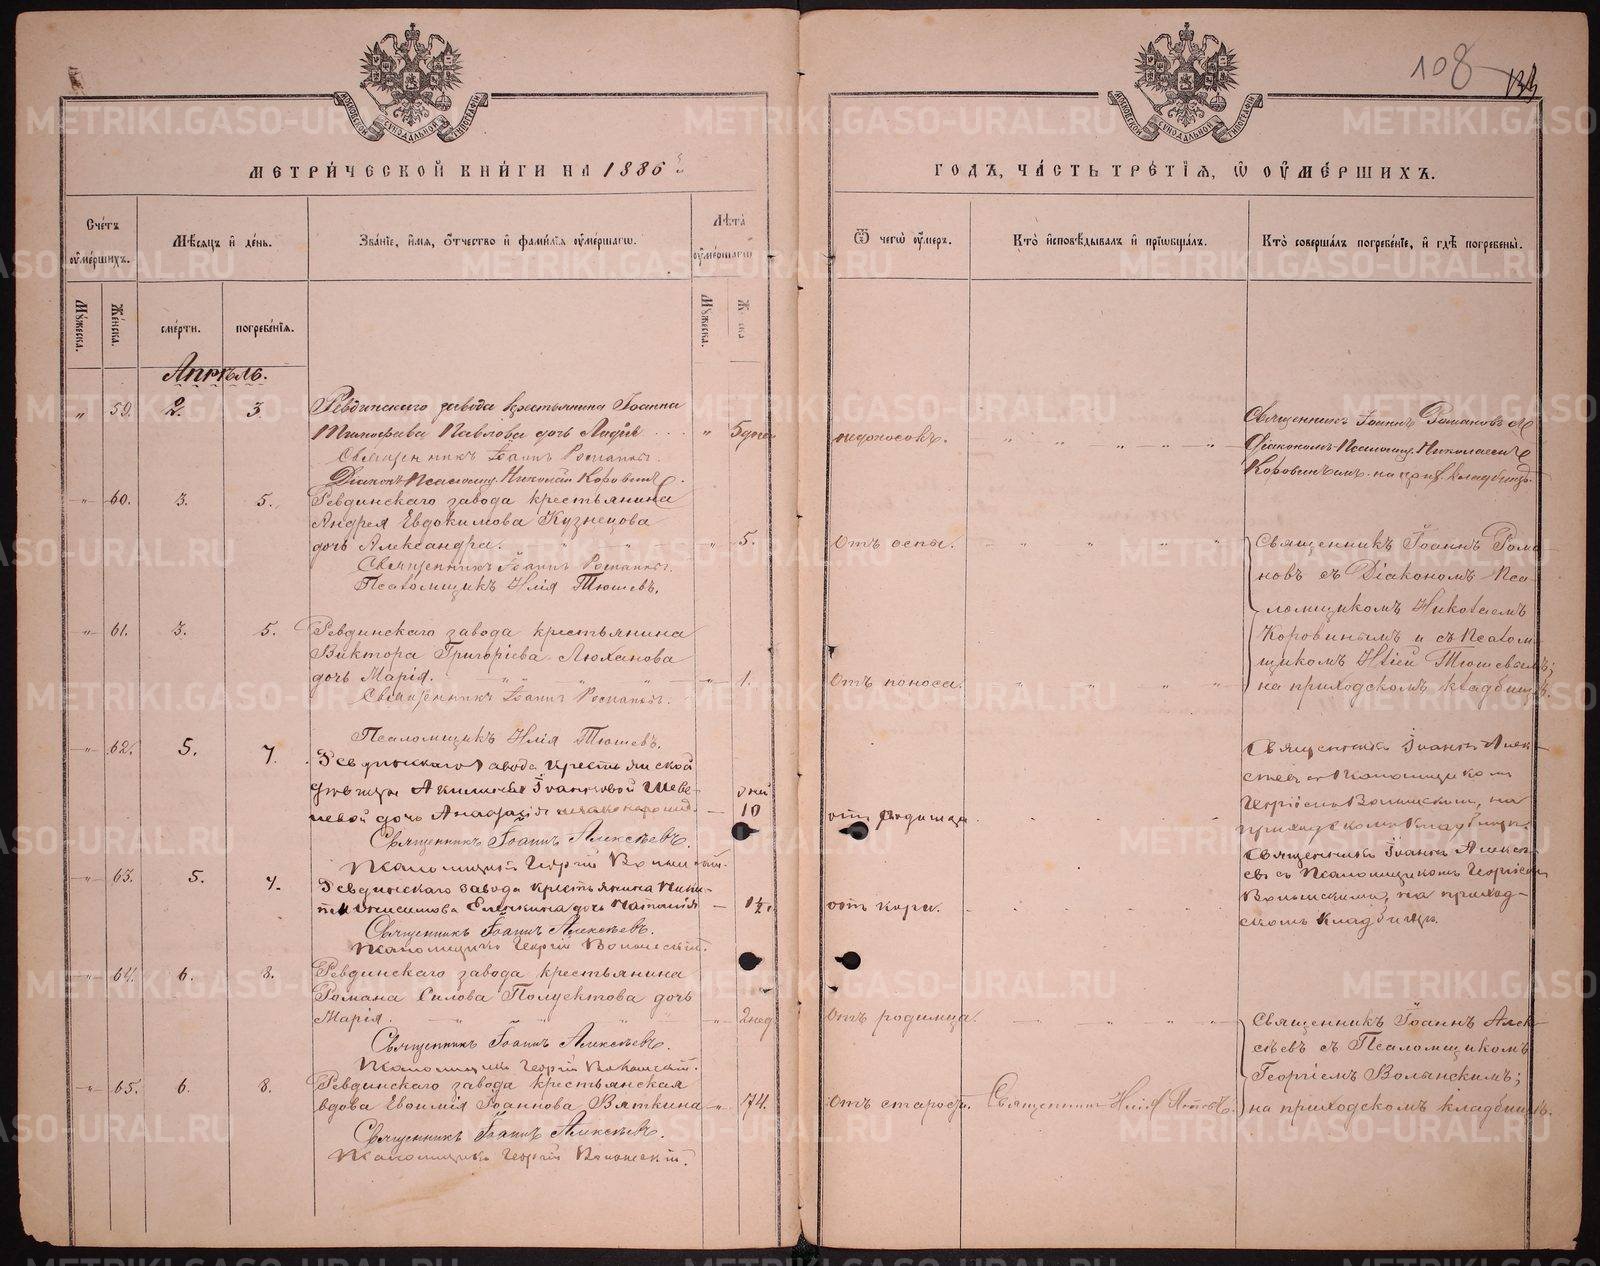 108
133
МОСКОВСКОЙ СѴНОДАЛЬНОЙ ТИПОГРАФІИ
МОСКОВСКОЙ СѴНОДАЛЬНОЙ ТИПОГРАФІИ
МЕТРИ́ЧЕСКОЙ КНИ́ГИ НА 1886
ГОДЪ, ЧА́СТЬ ТРЕ́ТІѦ, Ѿ ОУМЕ́РШИХЪ.
Сче́тъ оумершихъ.
Мѣсѧцъ и день.
Зва́ніе, имѧ, отчество и фамилія оумершагѡ.
Лѣта оумершагѡ
Ѿ чегѡ оумеръ.
Кто исповѣдывалъ и пріѡбщалъ.
Кто совершалъ погребеніе, и гдѣ погребены.
Мужеска.
Женска.
смерти.
погребенія.
Мужеска.
Женска
Апрѣль.
" 59. 2. 3. Ревдинскаго завода крестьянина Іоанна
Тимофѣева Павлова дочь Лидія " 5 дней недоносокъ.
Священникъ Іоаннъ Романовъ.
Діаконъ Псаломщ. Николай Коровинъ.
Священникъ Іоаннъ Романовъ съ
Діакономъ-Псаломщ. Николаемъ
Коровинымъ. на прих. кладбищѣ.
" 60. 3. 5. Ревдинскаго завода крестьянина
Андрея Евдокимова Кузнецова
дочь Александра. " 5. Отъ оспы.
Священникъ Іоаннъ Романовъ.
Псаломщикъ Илія Тюшевъ.
" 61. 3. 5. Ревдинскаго завода крестьянина
Виктора Григоріева Люханова
дочь Марія. " 1. Отъ поноса.
Священникъ Іоаннъ Романовъ.
Псаломщикъ Илія Тюшевъ.
Священникъ Іоаннъ Рома-
новъ съ Діакономъ Пса-
ломщикомъ Николаемъ
Коровинымъ и съ Псалом-
щикомъ Иліей Тюшевымъ;
на приходскомъ кладбищѣ.
" 62. 5. 7. Ревдинскаго завода крестьянской
дѣвицы Іоанновой
дочь дней 10 отъ родимца
Священникъ Іоаннъ Алексѣевъ.
Псаломщикъ Георгій Волынскій.
Священникъ Іоаннъ Алек-
сѣевъ съ Псаломщикомъ
Георгіемъ Волынскимъ, на
приходскомъ кладбищѣ.
" 63. 5. 7. Ревдинскаго завода крестьянина Ники-
ты Онисимова дочь Наталія 1½ отъ кори.
Священникъ Іоаннъ Алексѣевъ.
Псаломщикъ Георгій Волынскій.
Священникъ Іоаннъ Алексѣ-
евъ съ Псаломщикомъ Георгіемъ
Волынскимъ, на приход-
скомъ кладбищѣ.
" 64. 6. 8. Ревдинскаго завода крестьянина
Романа Силова Полуектова дочь
Марія. " 2 нед. Отъ родимца.
Священникъ Іоаннъ Алексѣевъ.
Псаломщикъ Георгій Волынскій.
" 65. 6. 8. Ревдинскаго завода крестьянская
вдова Евфимія Іоаннова Вяткина " 74. Отъ старости. Священникъ Илія
Священникъ Іоаннъ Алексѣевъ.
Псаломщикъ Георгій Волынскій.
Священникъ Іоаннъ Алек-
сѣевъ съ Псаломщикомъ
Георгіемъ Волынскимъ;
на приходскомъ кладбищѣ.
METRIKI.GASO-URAL.RU